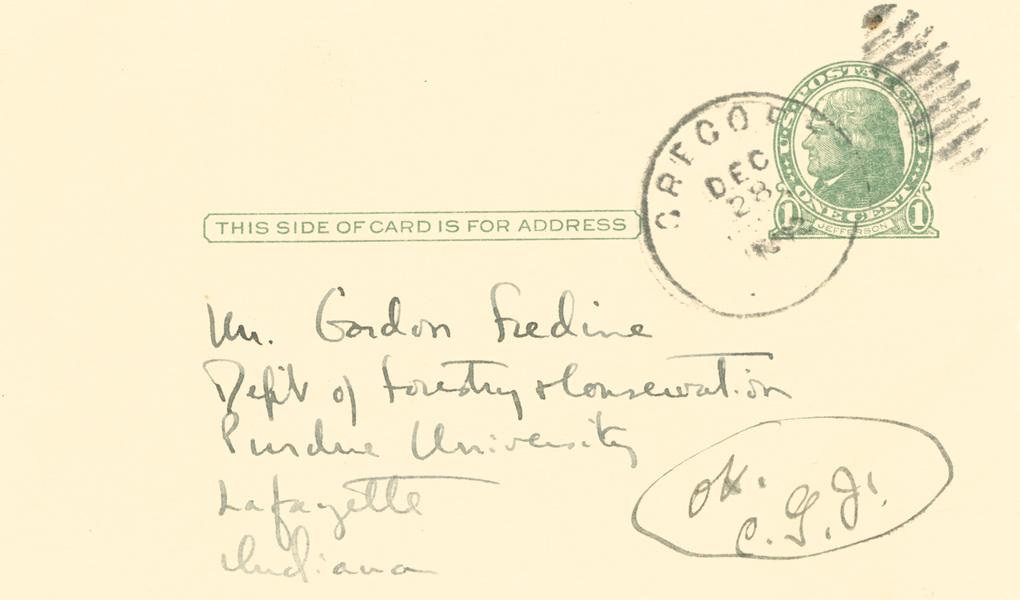 U.S. POSTAL CARD
ONE CENT
1 JEFFERSON 1
DEC
28
THIS SIDE OF CARD IS FOR ADDRESS
Mr. Gordon Fredine
Dep't of Forestry & Conservation
Purdue University
Lafayette
Indiana
OK.
C. G. J.